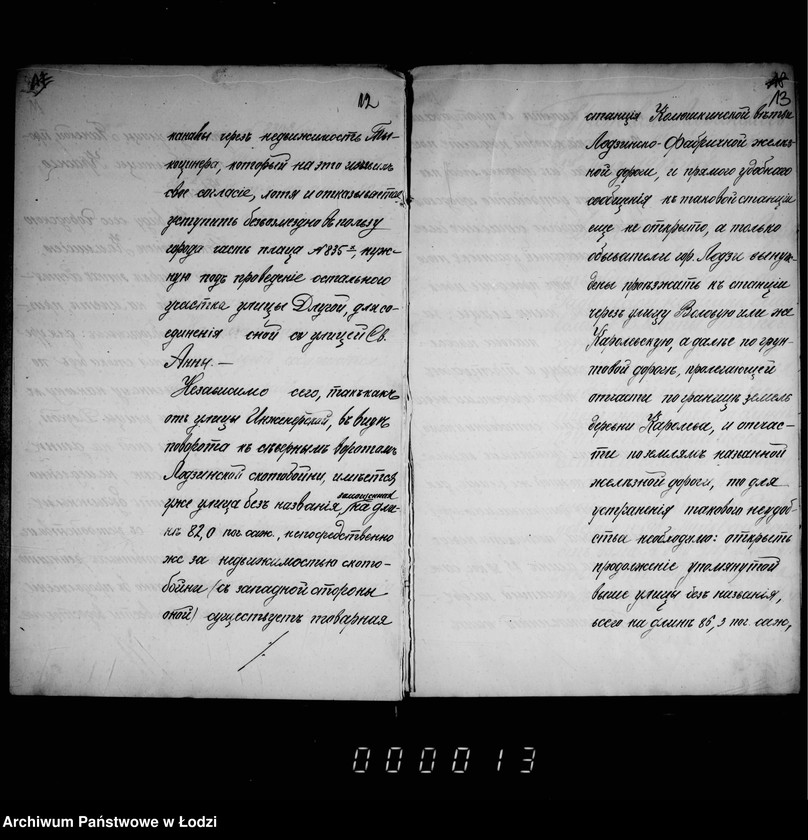 12
канавы чрезъ недвижимость Ты-
коцинера, который на это изъявилъ
свое согласіе, хотя и отказывается
уступить безвозмездно въ пользу
города часть плаца № 835ª, нуж-
ную подъ проведеніе остального
участка улицы Длугой, для со-
единенія оной съ улицей Св.
Анны.—
Независимо сего, такъ какъ
отъ улицы Инженерской, въ видѣ
поворота къ сѣвернымъ воротамъ
Лодзинской скотобойни, имѣется
уже улица безъ названія, замощенная на дли-
нѣ 82,0 пог. саж., непосредственно
же за недвижимостью ското-
бойни (съ западной стороны
оной) существуетъ товарная
13
станція Колюшкинской вѣтви
Лодзинско-Фабричной желѣз-
ной дороги, и прямого удобнаго
сообщенія къ таковой станціи
еще не открыто, а только
обыватели гор. Лодзи вынуж-
дены проѣзжать къ станціи
черезъ улицу Воловую или же
Карольскую, а далѣе по грун-
товой дорогѣ, пролегающей
отчасти по границѣ земель
деревни Каролевъ, и отчас-
ти по землямъ названной
желѣзной дороги, то для
устраненія таковаго неудоб-
ства необходимо: открыть
продолженіе упомянутой
выше улицы безъ названія,
всего на длинѣ 85,3 пог. саж.,
000013
Archiwum Państwowe w Łodzi